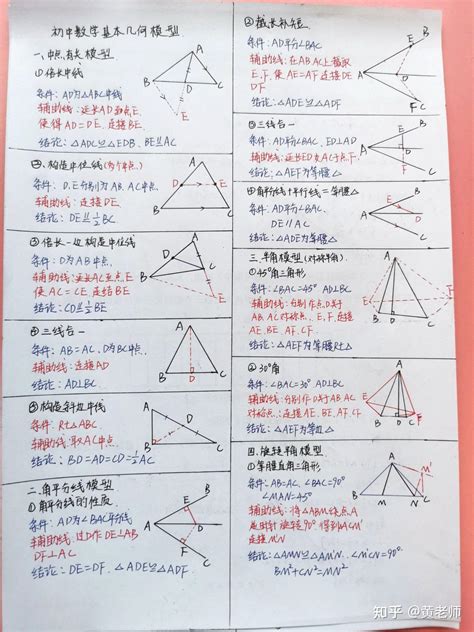 初中数学基本几何模型
一、中点有关模型
①倍长中线
条件：AD为△ABC中线
辅助线：延长AD到点E,
使得AD=DE，连接BE.
结论：△ADC≌△EDB. BE∥AC
②、构造中位线(多个中点.)
条件：D.E分别为AB. AC中点.
辅助线：连接DE
结论：DE∥½BC
③倍长一边构造中位线
条件：D为AB中点.
辅助线：延长AC至点E.
使AC=CE 连结BE
结论：CD∥½BE
④三线合一
条件：AB=AC, D为BC中点.
辅助线：连接AD
结论：AD⊥BC
⑤构造斜边中线
条件：Rt△ABC.
辅助线：取AC中点.
结论：BD=AD=CD=½AC
二、角平分线模型
①角平分线的性质.
条件：AD为∠BAC平分线
辅助线：过D作DE⊥AB
DF⊥AC
结论：DE=DF. △ADE≌△ADF.
②截长补短
条件：AD平分∠BAC
辅助线：在ABAC上截取
E.F. 使AE=AF连接DE
DF
结论：△ADE≌△ADF
③三线合一
条件：AD平分∠BAC, ED⊥AD
辅助线：延长ED交AC于点F.
结论：△AEF为等腰△
④角平分线+平行线=等腰△
条件：AD平分∠BAC.
DE∥AC
结论：△ADE为等腰△
三.半角模型(对称半角)
①45°角三角形
条件：∠BAC=45° AD⊥BC
辅助线：分别作点.D关于
AB.AC对称点.E.F.连接
AE.BE.AF.CF.
结论：△AEF为等腰Rt△
②30°角
条件：∠BAC=30° AD⊥BC
辅助线：分别作点D关于AB AC
对称点.:连接AE.BE.AF.CF
结论：△AEF为等边△
四.旋转半角模型
①等腰直角三角形
条件：AB=AC. ∠BAC=90°
∠MAN=45°
辅助线：将△ABM绕点A
逆时针旋转90°得到△ACM'
连接M'N
结论：△AMN≌△AM'N. ∠M'CN=90°
BM²+CN²=MN²
知乎 @黄老师